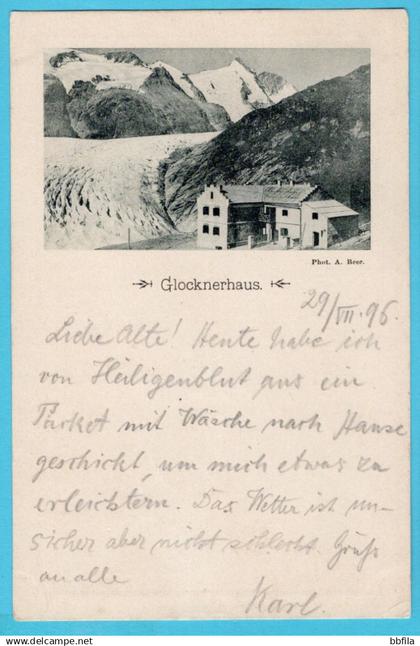 Phot. A. Beer.
Glocknerhaus.
29/VII. 96.
Liebe Alte! Heute habe ich
von Heiligenblut aus ein
Packet mit Wäsche nach Hause
geschickt, um mich etwas zu
erleichtern. Das Wetter ist un-
sicher aber nicht schlecht. Gruß
an alle
Karl.
www.delcampe.net
bbfila